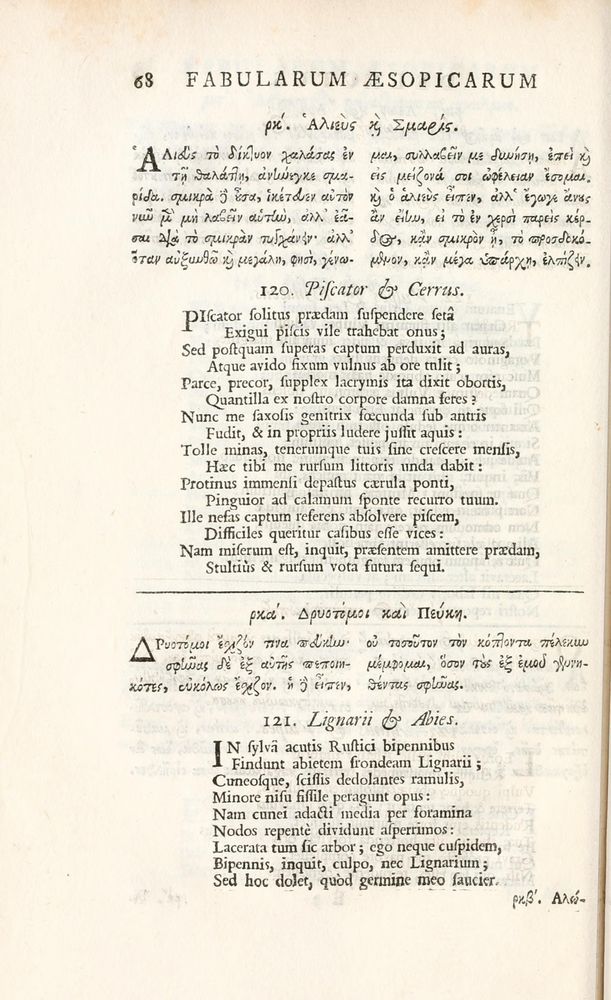 68 FABULARUM ÆSOPICARUM
ρκʹ. Ἁλιεὺς ϗ Σμαρίς.
Ἁλιεὺς τὸ δίκτυον χαλάσας ἐν
τῇ θαλάττῃ, ἀνήνεγκε σμα-
ρίδα. σμικρὰ δὲ ἦσα, ἱκέτευεν αὐτὸν
νῦν μὲν μὴ λαβεῖν αὐτὴν, ἀλλ' ἐᾶ-
σαι διὰ τὸ σμικρὰν τυγχάνειν· ἀλλ'
ὅταν αὐξυνθῶ ϗ μεγάλη, φησὶ, γένω-
μαι, συλλαβεῖν με δυνήσῃ, ἐπεὶ ϗ
εἰς μείζονά σοι ὠφέλειαν ἔσομαι.
ϗ ὁ ἁλιεὺς εἶπεν, ἀλλ' ἔγωγε ἄνους
ἂν εἴην, εἰ τὸ ἐν χερσὶ παρεὶς κέρ-
δος, κἂν σμικρὸν ᾖ, τὸ προσδοκώ-
μενον, κἂν μέγα ὑπάρχῃ, ἐλπίζειν.
120. Piſcator & Cerrus.
PIſcator ſolitus prædam ſuſpendere ſetâ
Exigui piſcis vile trahebat onus;
Sed poſtquam ſuperas captum perduxit ad auras,
Atque avido fixum vulnus ab ore tulit;
Parce, precor, ſupplex lacrymis ita dixit obortis,
Quantilla ex noſtro corpore damna feres?
Nunc me ſaxoſis genitrix fœcunda ſub antris
Fudit, & in propriis ludere juſſit aquis:
Tolle minas, tenerumque tuis ſine creſcere menſis,
Hæc tibi me rurſum littoris unda dabit:
Protinus immenſi depaſtus cærula ponti,
Pinguior ad calamum ſponte recurro tuum.
Ille nefas captum referens abſolvere piſcem,
Difficiles queritur caſibus eſſe vices:
Nam miſerum eſt, inquit, præſentem amittere prædam,
Stultiùs & rurſum vota futura ſequi.
ρκαʹ. Δρυοτόμοι καὶ Πεύκη.
ΔΡυοτόμοι ἔσχιζόν τινα πεύκην·
σφῆνας δὲ ἐξ αὐτῆς πεποιη-
κότες, εὐκόλως ἔσχιζον. ἡ δὲ εἶπεν,
οὐ τοσοῦτον τὸν κόπτοντα πέλεκυν
μέμφομαι, ὅσον τοὺς ἐξ ἐμοῦ γεννη-
θέντας σφῆνας.
121. Lignarii & Abies.
IN ſylvâ acutis Ruſtici bipennibus
Findunt abietem frondeam Lignarii;
Cuneoſque, ſciſſis dedolantes ramulis,
Minore niſu fiſſile peragunt opus:
Nam cunei adacti media per foramina
Nodos repentè dividunt aſperrimos:
Lacerata tum ſic arbor; ego neque cuſpidem,
Bipennis, inquit, culpo, nec Lignarium;
Sed hoc dolet, quòd germine meo ſaucier.
ρκβʹ. Αλώ-